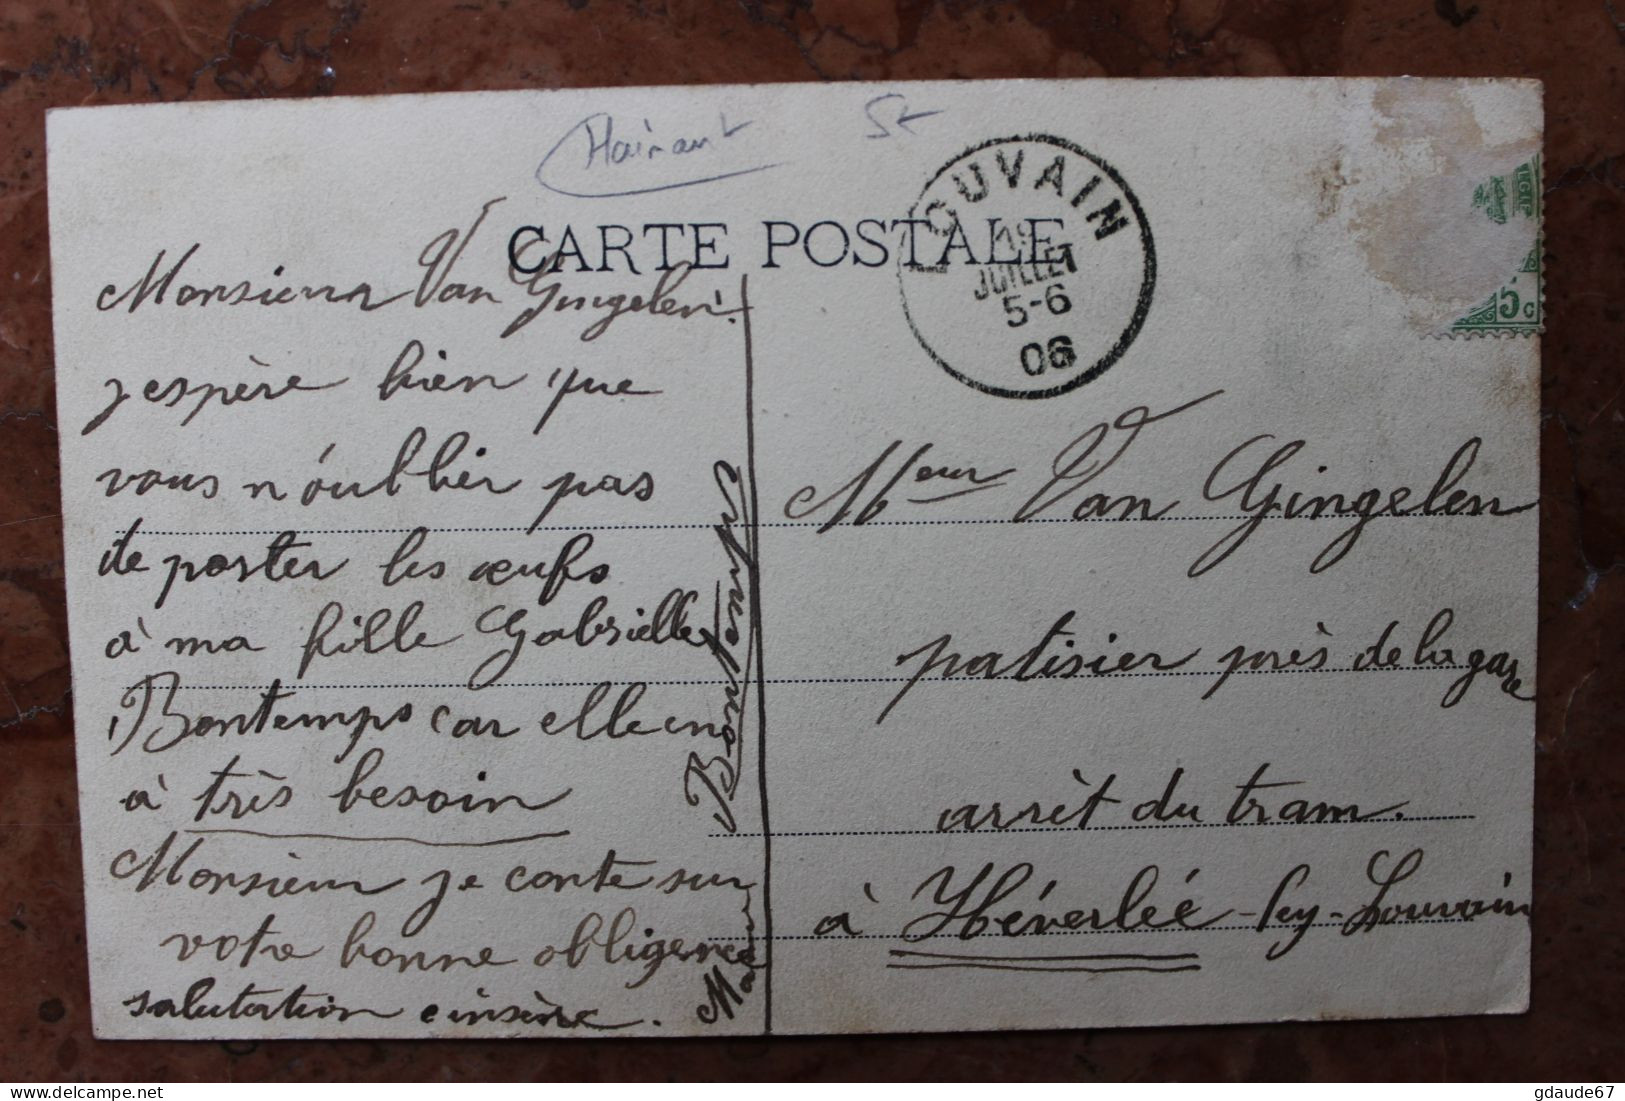 Hainaut
5€
CARTE POSTALE
LOUVAIN
19
JUILLET
5-6
06
5c
Monsieur Van Gingelen.
j'espère bien que
vous n'oublier pas
de porter les œufs
à ma fille Gabrielle
Bontemps car elle en
à très besoin
Monsieur je conte sur
votre bonne obligence
salutation cinsère.
Bontemps
Meur Van Gingelen
patisier près de la gare
arrèt du tram.
à Hévérlée-lez-Louvain
gdaude67